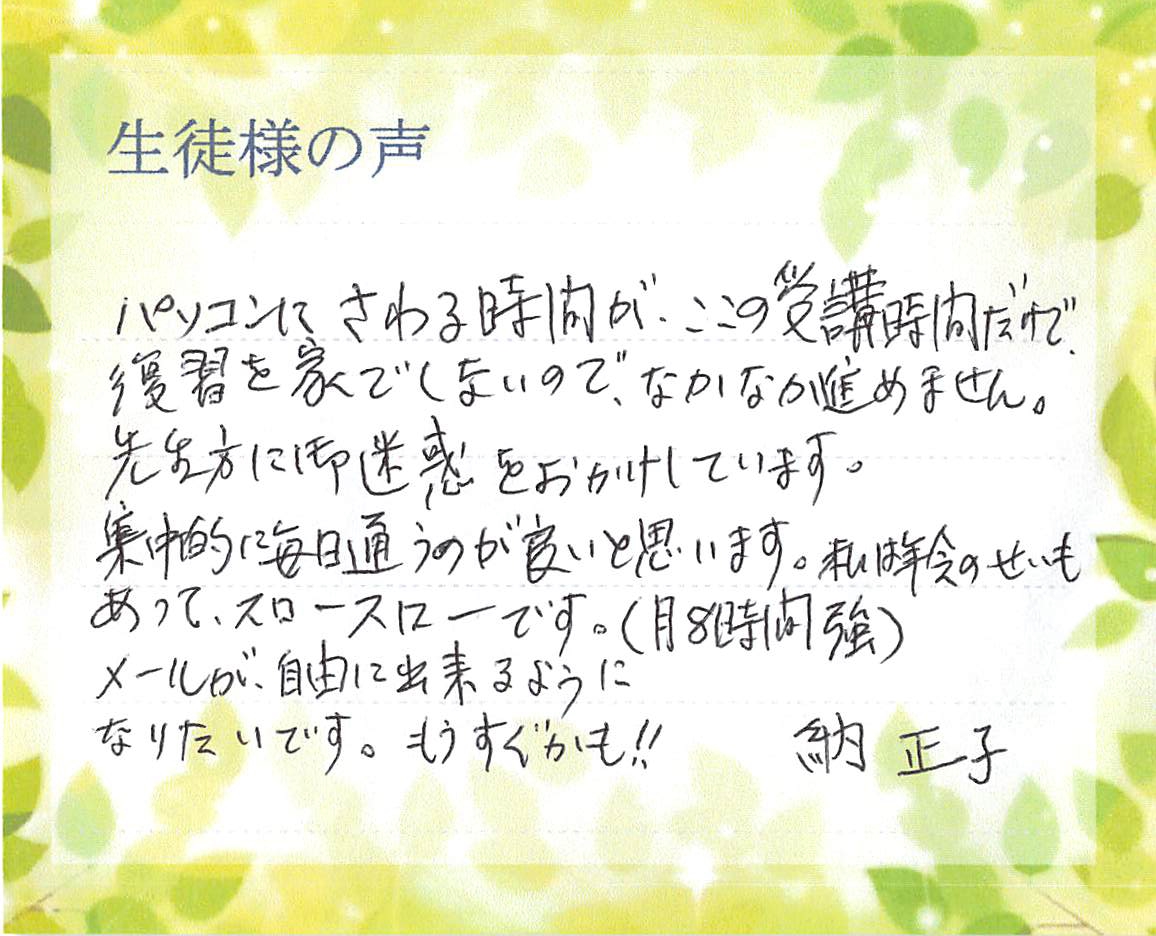 生徒様の声
パソコンに さわる時間が、ここの受講時間だけで、
復習を家でしないので、なかなか進めません。
先生方に御迷惑をおかけしています。
集中的に毎日通うのが良いと思います。私は年令のせいも
あって、スロースローです。(月8時間強)
メールが、自由に出来るように
なりたいです。もうすぐかも!!
納 正子